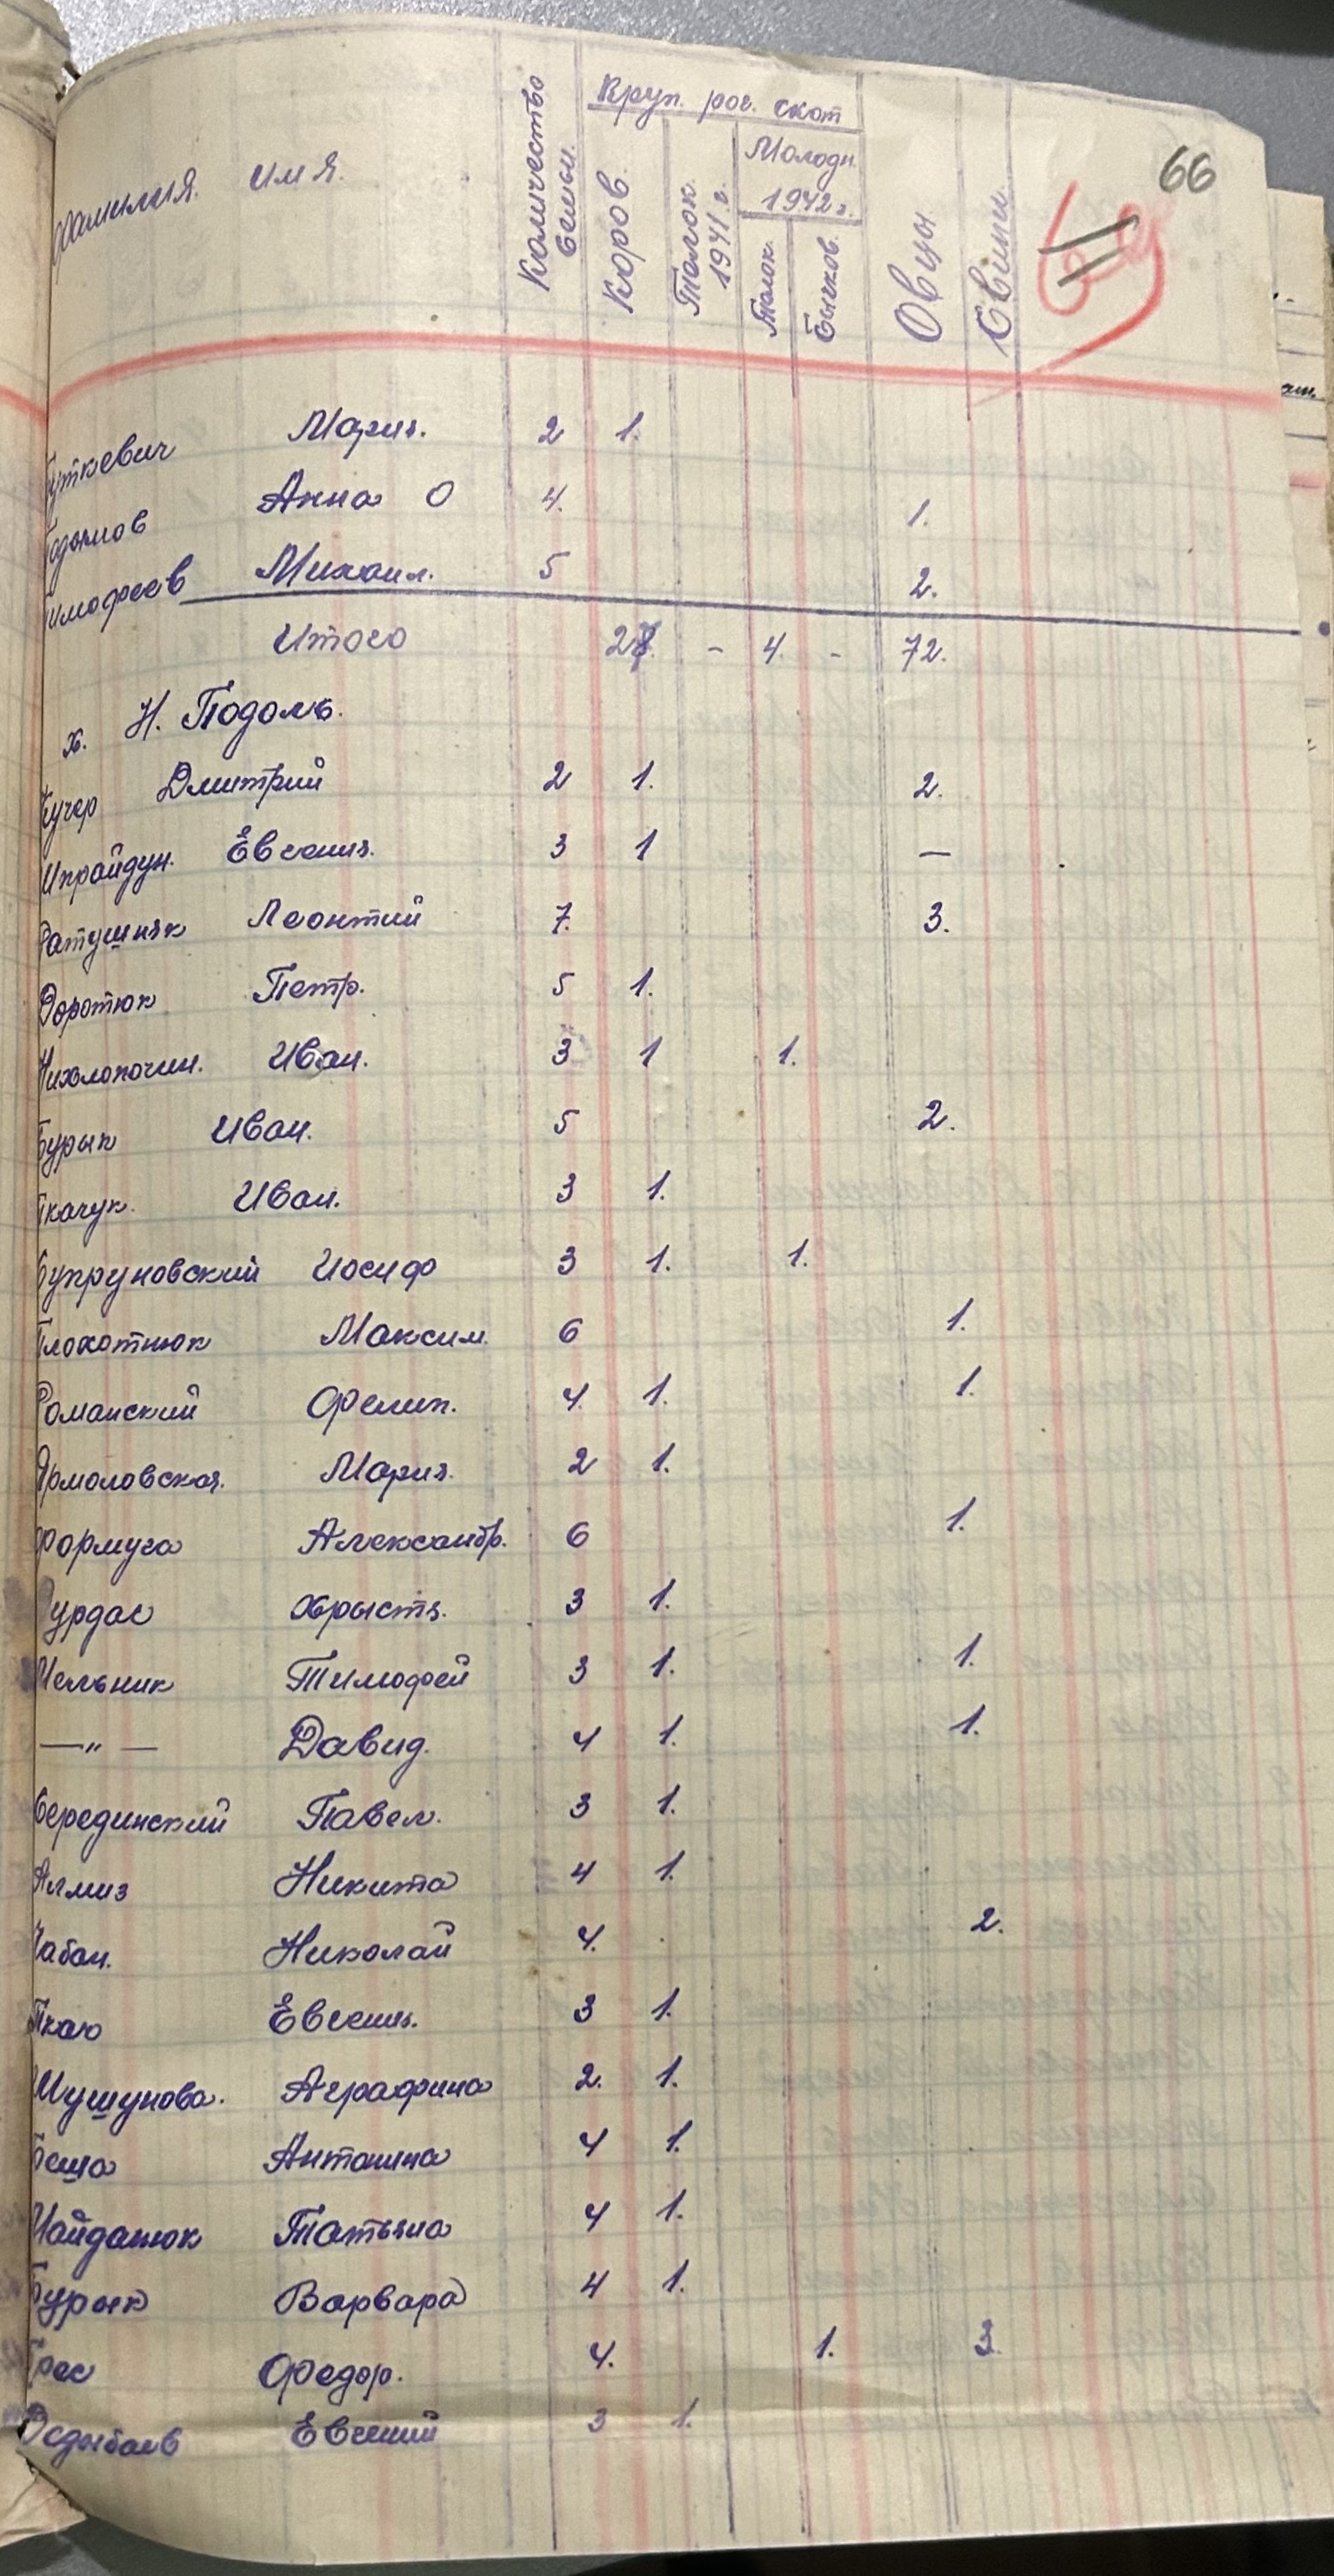 66
Фамилия. имя. Количество семьи. Круп. рог. скот Коров. Телок. 1941 г. Молодн. 1942 г. Телок. Бычков. Овцы Свиньи
уткевич Мария. 2 1.
Анна О 4. 1.
имофеев Михаил. 5 2.
Итого 27. - 4. - 72.
х. Н. Подоль.
Кучер Дмитрий 2 1. 2.
Евгения. 3 1 —
Ратушняк Леонтий 7. 3.
Воротюк Петр. 5 1.
Нихлопочин. Иван. 3 1 1.
Бурык Иван. 5 2.
Ткачук. Иван. 3 1.
Супруновский Иосиф 3 1. 1.
Плохотнюк Максим. 6 1.
Романский Филип. 4. 1. 1.
Ярмоловская. Мария. 2 1.
Формуга Александр. 6 1.
урдас Хрыстя. 3 1.
Мельник Тимофей 3 1. 1.
— „ — Давид. 4 1. 1.
Серединский Павел. 3 1.
Алмиз Никита 4 1.
Чабан. Николай 4. 2.
Ткаю Евгения. 3 1.
Шушунова. Аграфина 2. 1.
Беша Антонина 4 1.
Найданюк Татьяна 4 1.
Бурык Варвара 4 1.
рес Федор. 4. 1. 3.
Евгений 3 1.